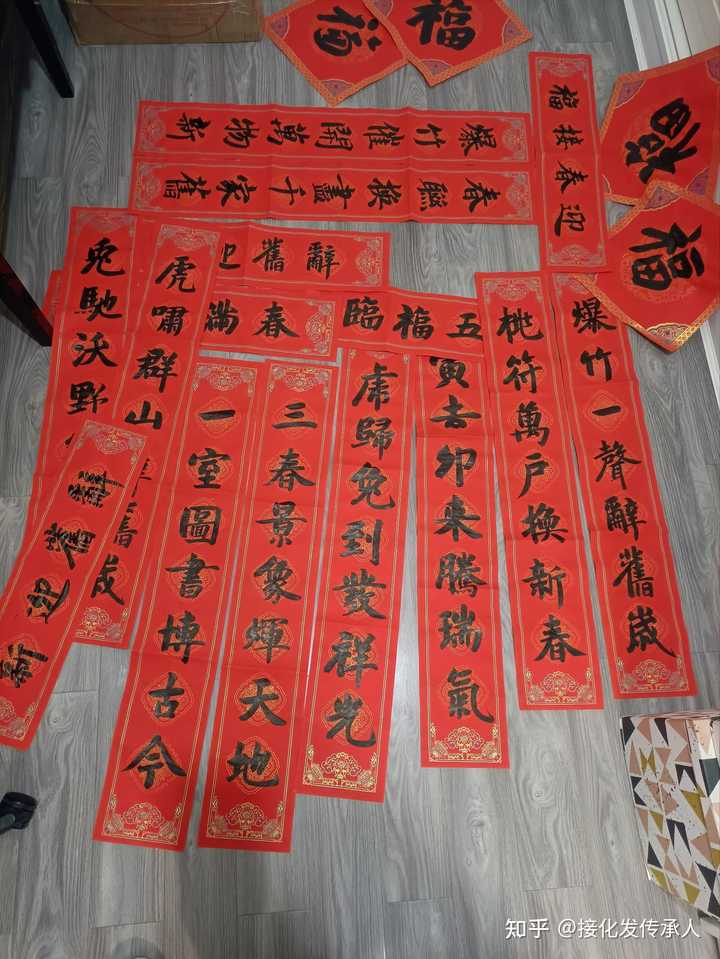 福
福
福
福
爆竹催開萬物新
春聯換盡千家舊
迎春接福
辭舊迎
春滿
五福臨
爆竹一聲辭舊歲
桃符萬戶換新春
寅去卯來騰瑞氣
虎歸兔到發祥光
三春景象輝天地
一室圖書博古今
虎嘯群山
舊歲
兔馳沃野
辭舊迎新
知乎 @接化发传承人